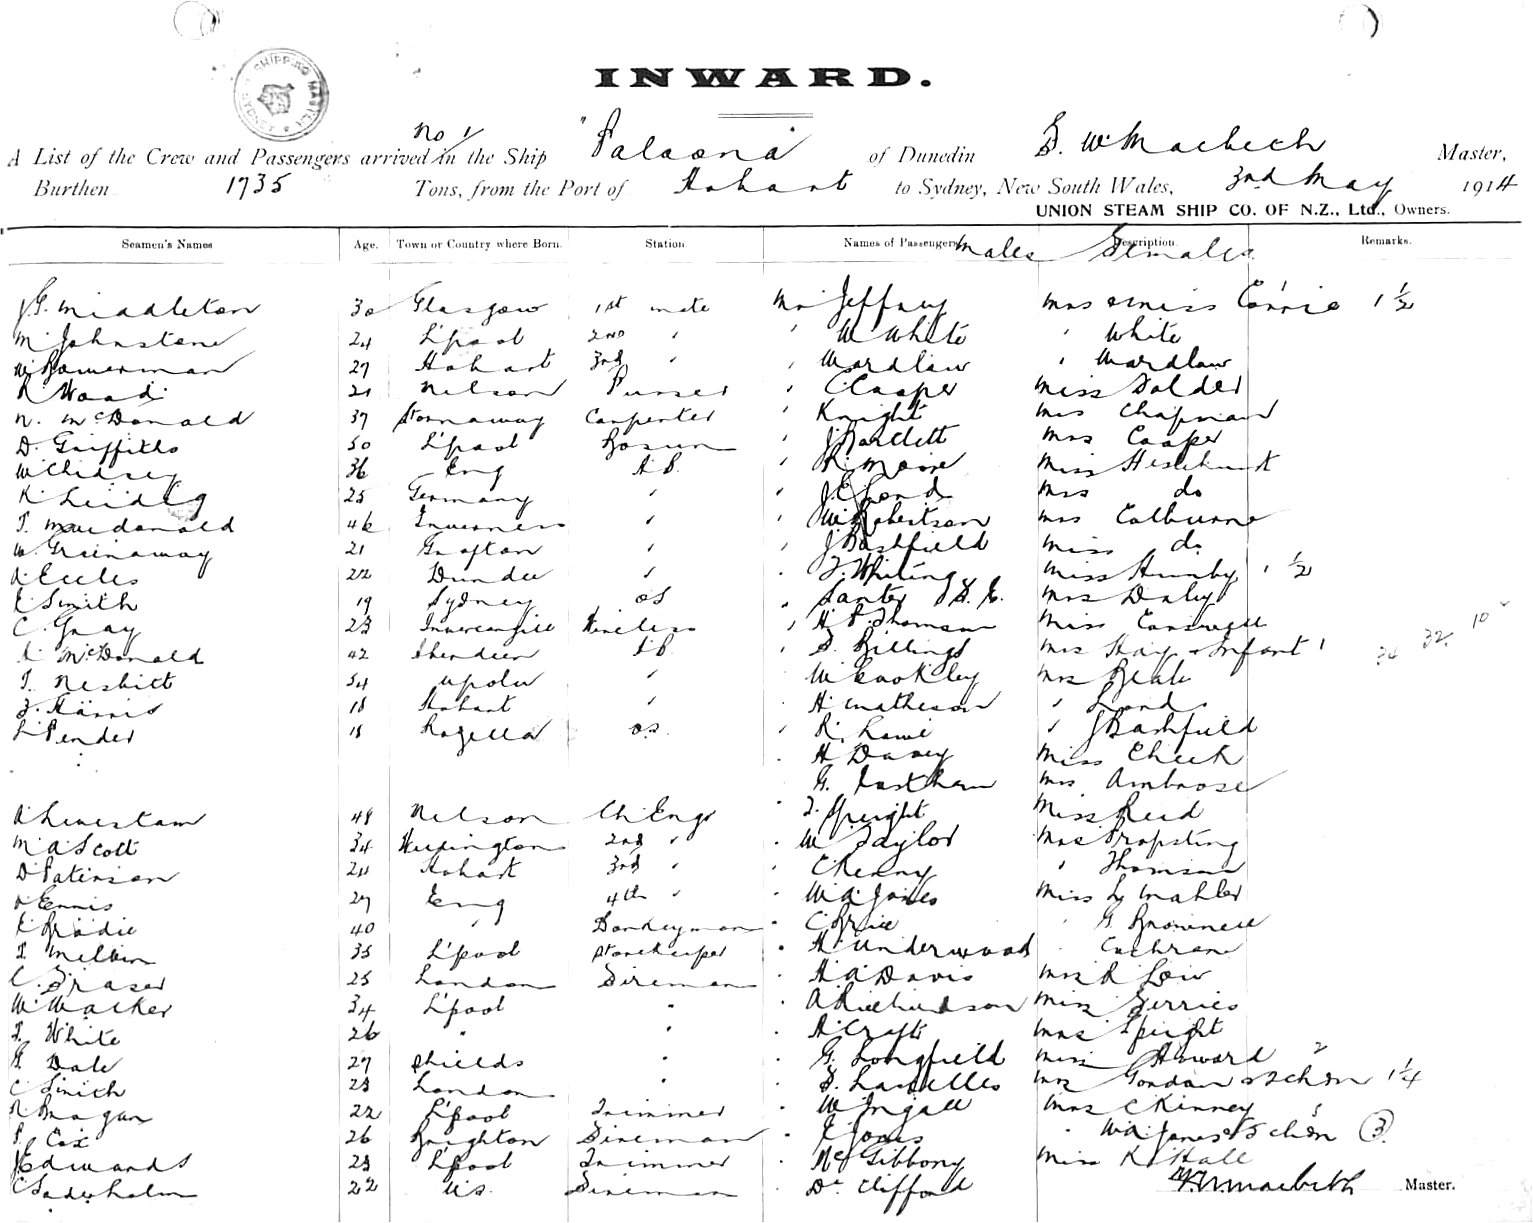 SHIPPING MASTER SYDNEY
INWARD.
No 1
A List of the Crew and Passengers arrived in the Ship "Paloona" of Dunedin W Macbeth Master,
Burthen 1735 Tons, from the Port of Hobart to Sydney, New South Wales, 3rd May 1914
UNION STEAM SHIP CO. OF N.Z., Ltd., Owners.
Seamen's Names Age. Town or Country where Born. Station Names of Passengers Description. Remarks.
Males Females
J.G. Middleton 30 Glasgow 1st mate Mr Jeffrey Mrs & Miss 1 ½
M Johnstone 24 L'pool 2nd " " W White " White
W Bowerman 27 Hobart 3rd " " Wardlaw " Wardlaw
R Wood 21 Nelson Purser " C Cooper Miss Dolder
N. McDonald 37 Stornaway Carpenter " Knight Mrs Chapman
D. Griffiths 50 L'pool Bosun " J Bartlett Mrs Cooper
W Chidsey 36 Eng A.B. " R. Moore Miss
K. Leidig 25 Germany " " J E Lord Mrs do
T. Macdonald 46 Inverness " " W Robertson Mrs Colburne
W. Greenaway 21 Grafton " " J Bashfield Miss do
A. Eccles 22 Dundee " " F. Whiting Miss 1 ½
E Smith 19 Sydney OS " Mrs Daly
C. Gray 23 Invercargill Wireless " H P Thomson Miss
A. McDonald 42 Aberdeen A.B. " S. Billings Mrs Hay & Infant 1 34 32 10
T. Nesbitt 54 Upolu " " W Cookley Mrs Beale
F. Harris 18 Hobart " " H Matheson " Lord
L Pender 18 Rozella O.S. " R. Lowe " J Bashfield
" H Davey Miss Cheek
" G. Mrs Ambrose
A 48 Nelson Ch Engr " T. Speight Miss Reid
M A Scott 34 Wellington 2nd " " W Taylor Mrs Propsting
D Paterson 24 Hobart 3rd " " C Kenny " Thomson
A Ennis 27 Eng 4th " " W A Jones Miss L Mahler
E Brodie 40 " Donkeyman " C Price " G. Brownell
T Millin 35 L'pool Storekeeper " H Underwood " Cochrane
C. Fraser 25 London Fireman " H A Davis Mrs R Low
W Walker 34 L'pool " " A Richardson Miss Gerries
T. White 26 " " " A Craft Mrs Speight
G. Dale 27 Shields " " G. Longfield Miss Howard
C Smith 28 London " " S. Lascelles Mrs Gordon & 2 chdn 1 ¼
R Magan 22 L'pool Trimmer " W Ingall Mrs C Kinney
P. Cox 26 Brighton Fireman " E Jones " W A Jones & 5 chdn 3
J Edwards 23 L'pool Trimmer " McGibbony Miss K Hall
C Soderholm 22 U.S. Fireman " Dr Clifford W. Macbeth Master.